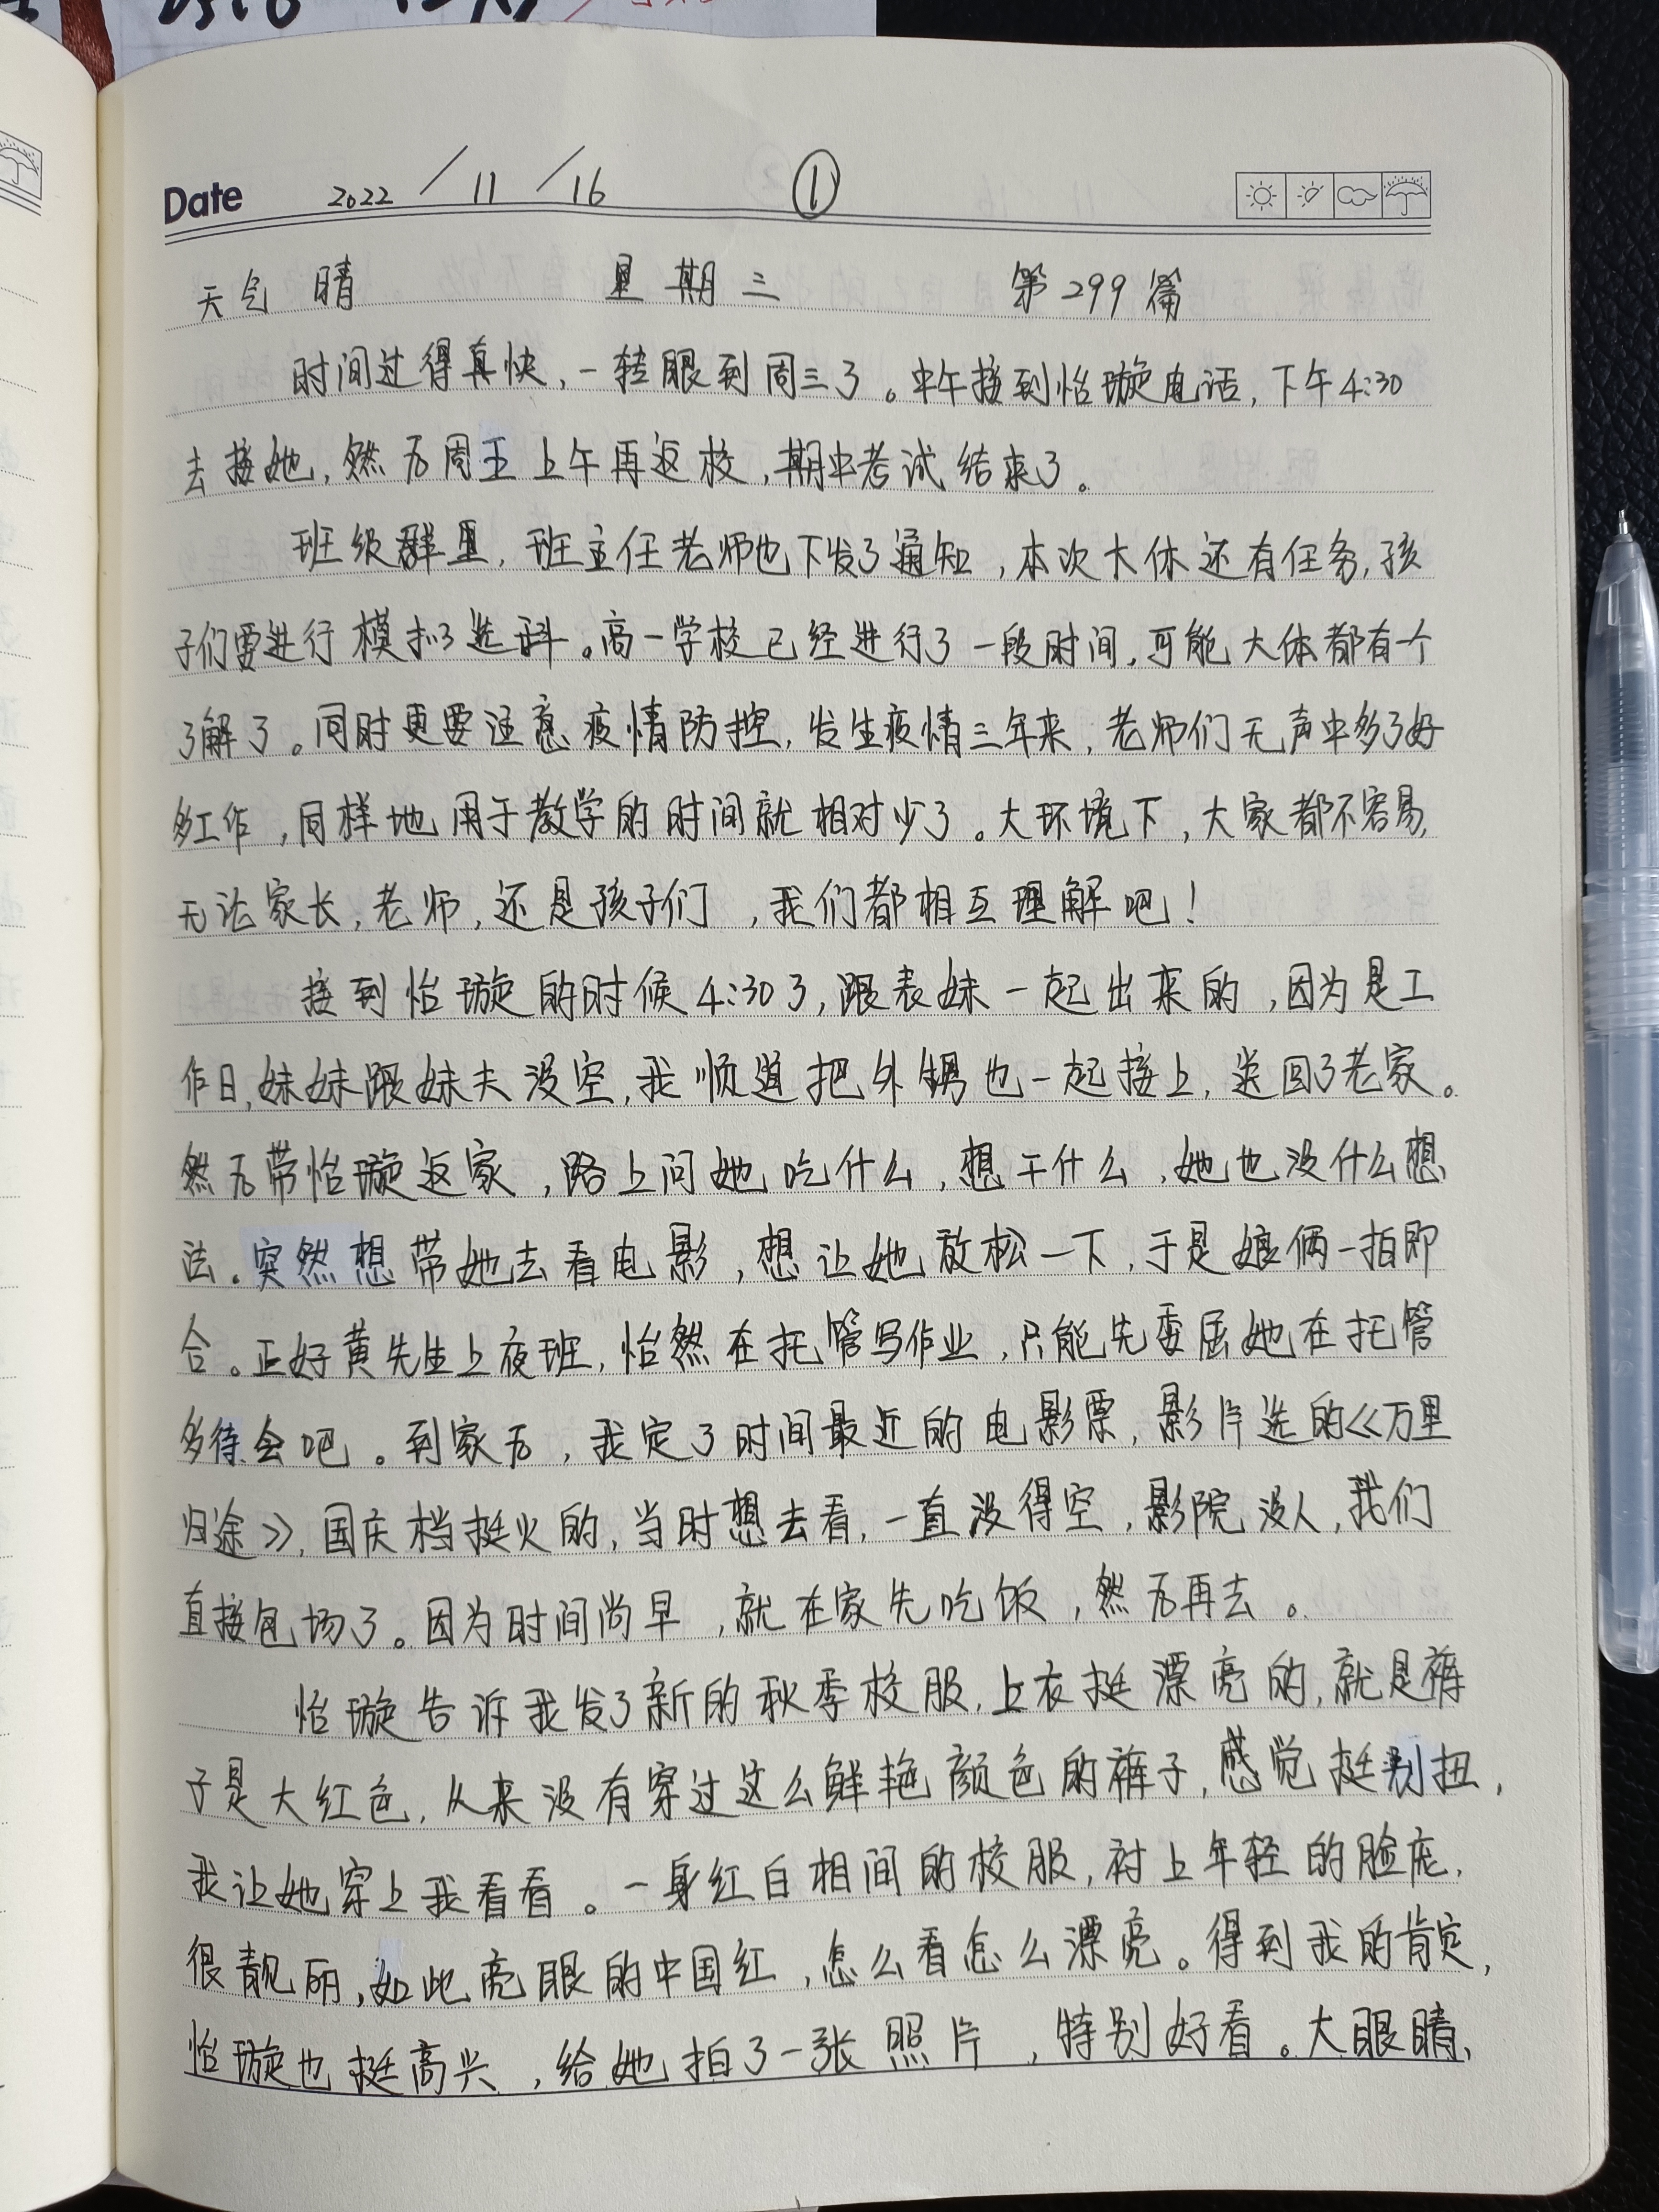 Date 2022/11/16 ①
天气 晴 星期三 第299篇
时间过得真快，一转眼到周三了。中午接到怡璇电话，下午4:30
去接她，然后周五上午再返校，期中考试结束了。
班级群里，班主任老师也下发了通知，本次大休还有任务，孩
子们要进行模拟选科。高一学校已经进行了一段时间，可能大体都有个
了解了。同时更要注意疫情防控，发生疫情三年来，老师们无声中多了好
多工作，同样地用于教学的时间就相对少了。大环境下，大家都不容易，
无论家长，老师，还是孩子们，我们都相互理解吧！
接到怡璇的时候4:30了，跟表妹一起出来的，因为是工
作日，妹妹跟妹夫没空，我顺道把外甥也一起接上，送回了老家。
然后带怡璇返家，路上问她吃什么，想干什么，她也没什么想
法。突然想带她去看电影，想让她放松一下，于是娘俩一拍即
合。正好黄先生上夜班，怡然在托管写作业，只能先委屈她在托管
多待会吧。到家后，我定了时间最近的电影票，影片选的《万里
归途》，国庆档挺火的，当时想去看，一直没得空，影院没人，我们
直接包场了。因为时间尚早，就在家先吃饭，然后再去。
怡璇告诉我发了新的秋季校服，上衣挺漂亮的，就是裤
子是大红色，从来没有穿过这么鲜艳颜色的裤子，感觉挺别扭，
我让她穿上我看看。一身红白相间的校服，衬上年轻的脸庞，
很靓丽，如此亮眼的中国红，怎么看怎么漂亮。得到我的肯定，
怡璇也挺高兴，给她拍了一张照片，特别好看。大眼睛，